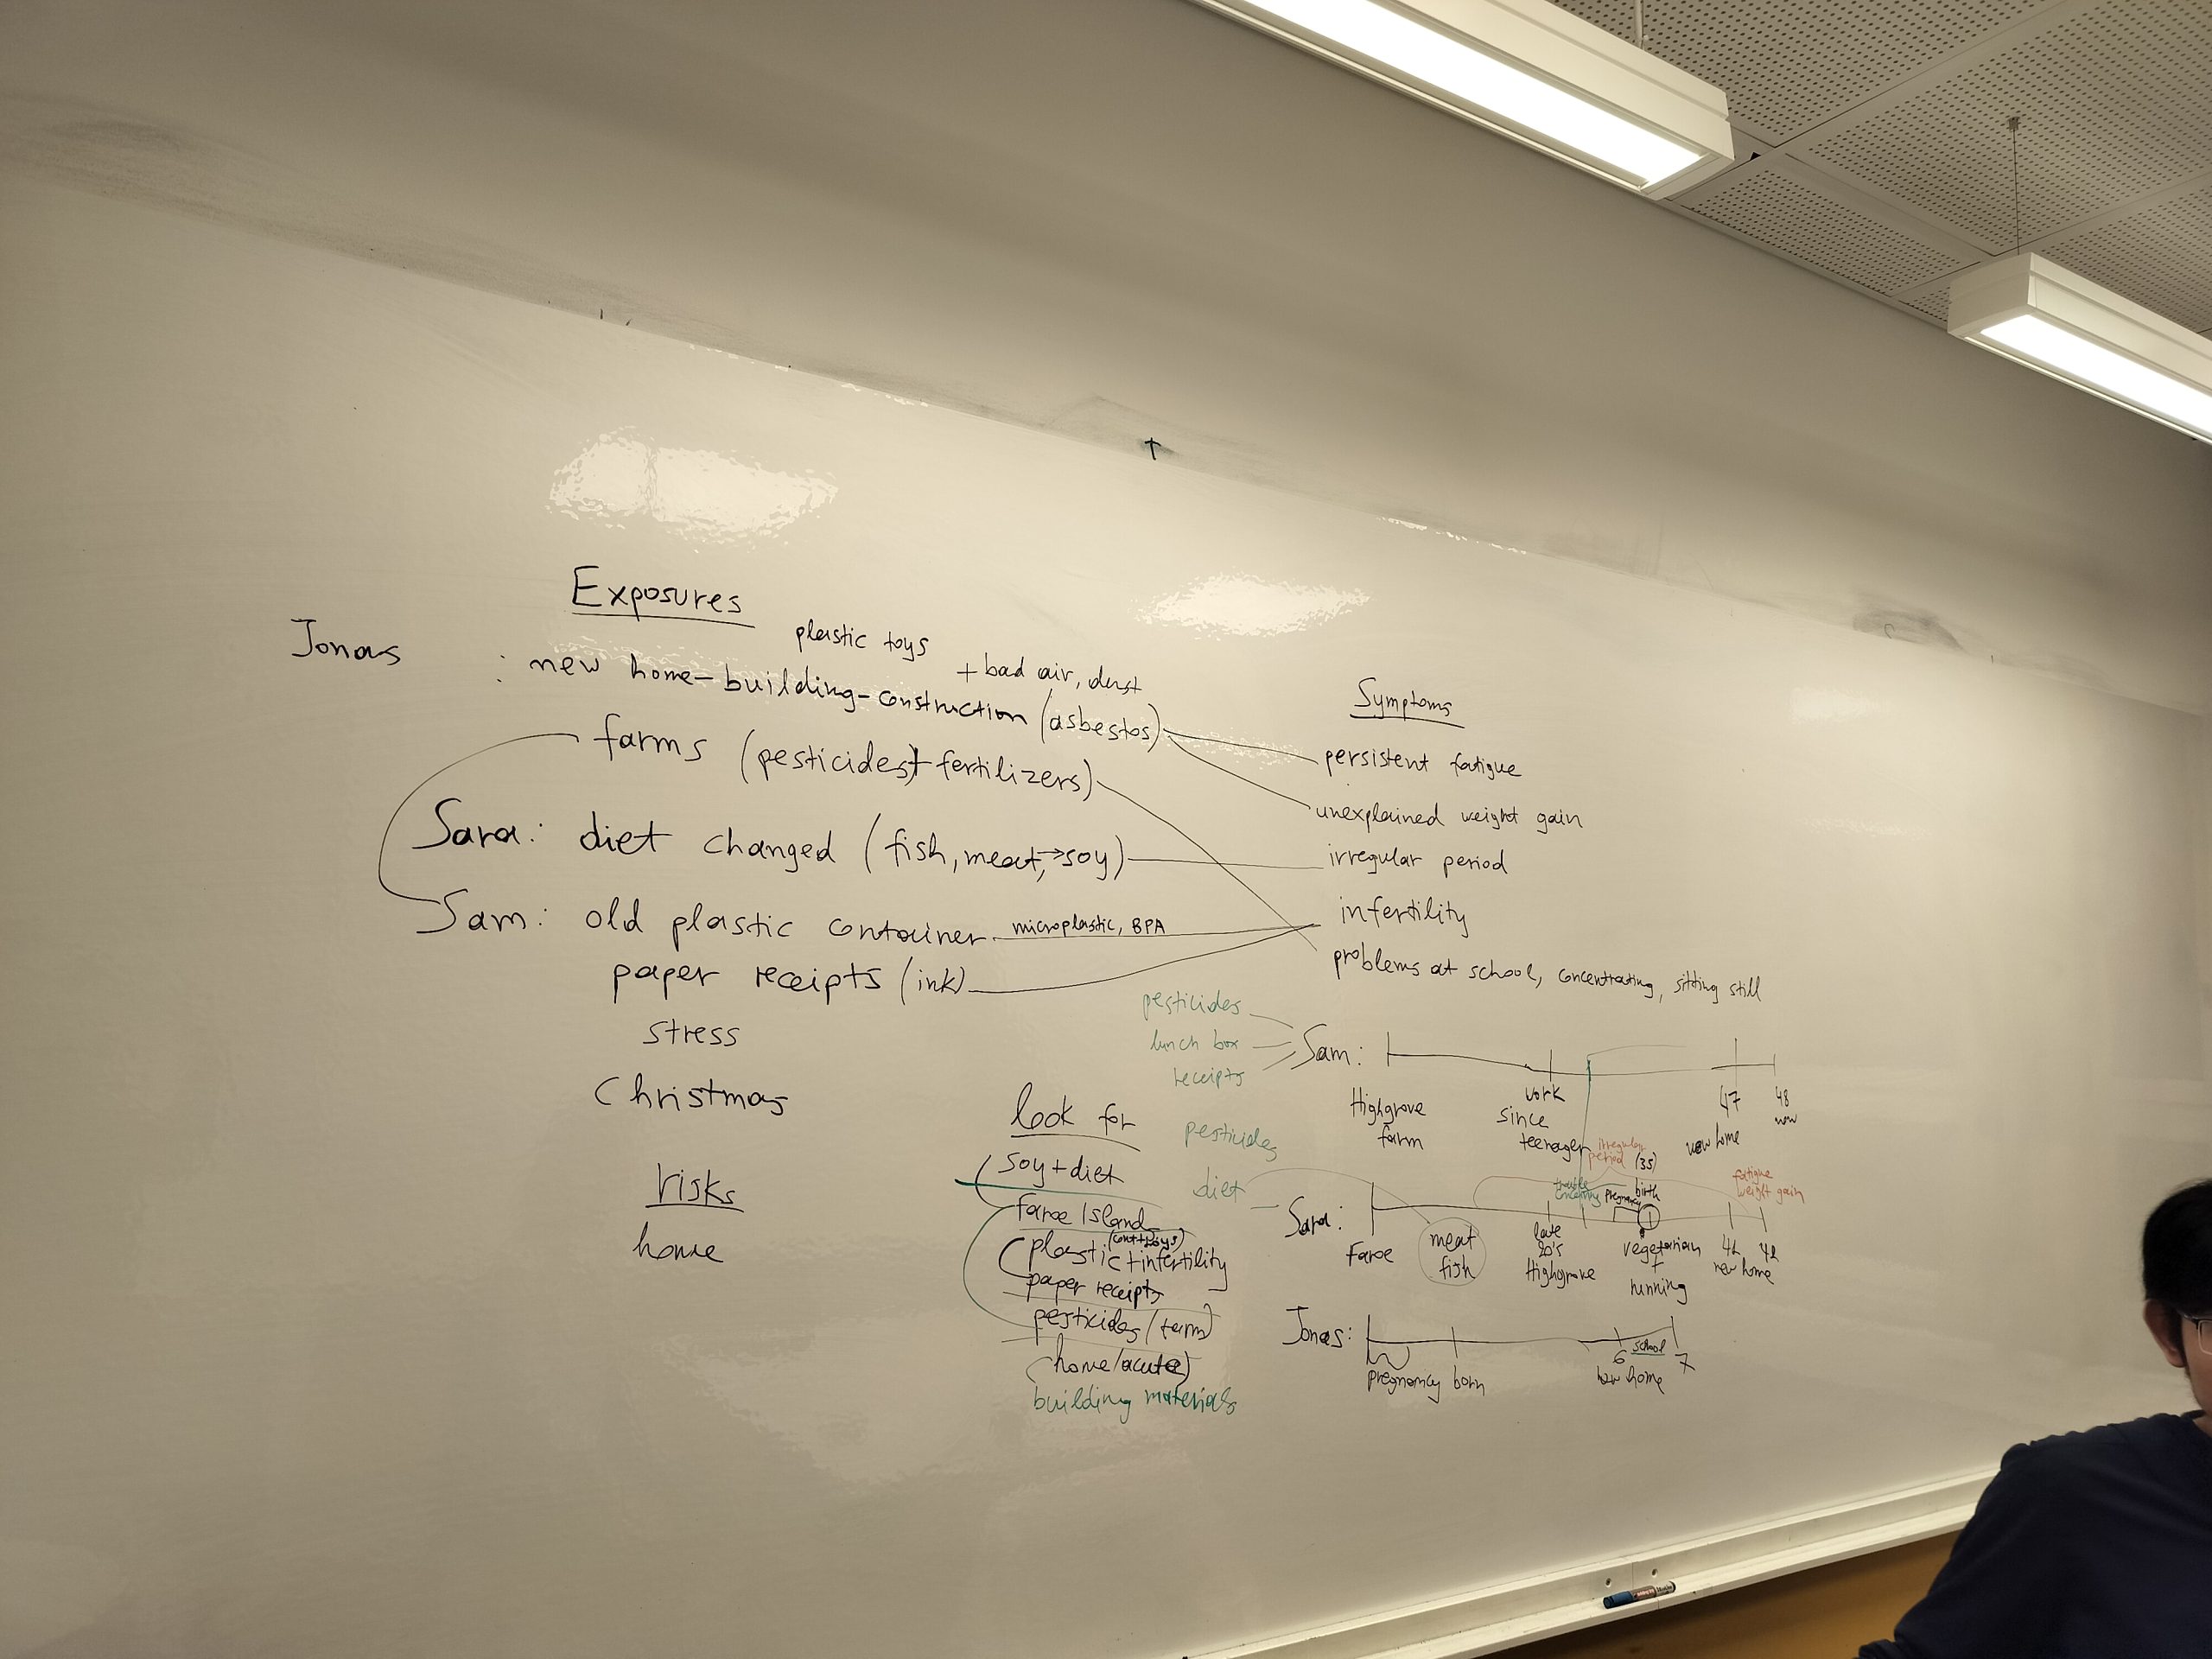 Exposures
Jonas
plastic toys
: new home-building-construction (asbestos)
+ bad air, dust
farms (pesticides + fertilizers)
Sara: diet changed (fish, meat, → soy)
Sam: old plastic container microplastic, BPA
paper receipts (ink)
stress
Christmas
risks
home
Symptoms
persistent fatigue
unexplained weight gain
irregular period
infertility
problems at school, concentrating, sitting still
look for
soy + diet
faroe Island
(cont+toys)
plastic + infertility
paper receipts
pesticides (farm)
home (acute)
building materials
pesticides
lunch box
receipts
Sam:
Highgrove farm
work since teenager
47
new home
48
now
pesticides
diet
Sara:
Faroe
meat
fish
late 20's
Highgrove
irregular period (35)
pregnancy
birth
vegetarian
+
running
new home
fatigue
weight gain
Jonas:
pregnancy
born
6
school
7
new home